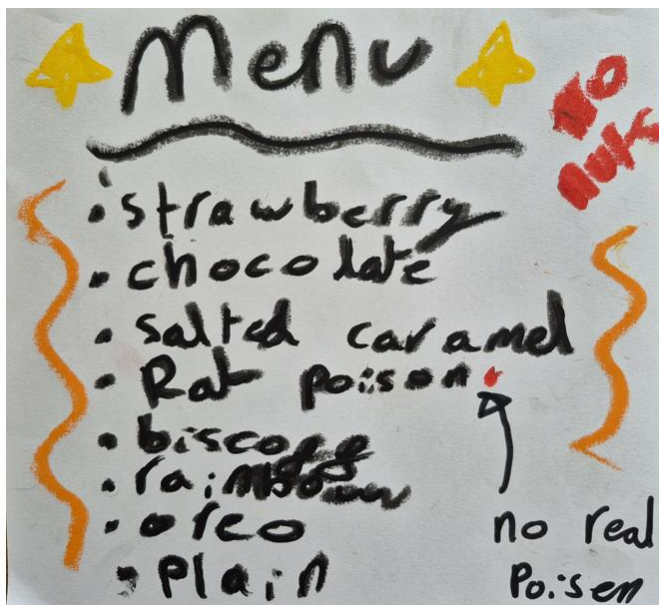 Menu
No
nuts
• strawberry
• chocolate
• salted caramel
• Rat poison
• biscoff
• rainbow
• oreo
• plain
no real
Poisen